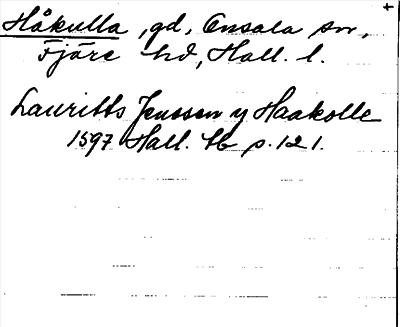 Håkulla, gd, Onsala sn,
Fjäre hd, Hall. l.
Lauritts Jenssen y Haakolle
1597 Hall. tb p. 121.